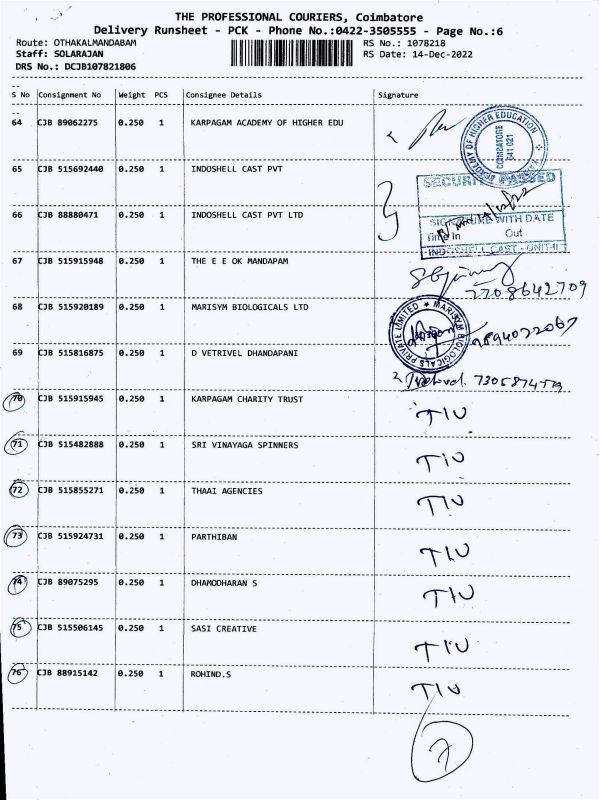 THE PROFESSIONAL COURIERS, Coimbatore
Delivery Runsheet - PCK - Phone No.:0422-3505555 - Page No.:6
Route: OTHAKALMANDABAM RS No.: 1078218
Staff: SOLARAJAN RS Date: 14-Dec-2022
DRS No.: DCJB107821806
S No Consignment No Weight PCS Consignee Details Signature
64 CJB 89062275 0.250 1 KARPAGAM ACADEMY OF HIGHER EDU
ACADEMY OF HIGHER EDUCATION
COIMBATORE
641 021
65 CJB 515692440 0.250 1 INDOSHELL CAST PVT
SECURITY PASSED
66 CJB 88880471 0.250 1 INDOSHELL CAST PVT LTD
SIGNATURE WITH DATE
Time In Out
INDOSHELL CAST - UNIT-II
67 CJB 515915948 0.250 1 THE E E OK MANDAPAM
7708642709
68 CJB 515920189 0.250 1 MARISYM BIOLOGICALS LTD
MARISYM BIOLOGICALS PRIVATE LIMITED
69 CJB 515816875 0.250 1 D VETRIVEL DHANDAPANI
70 CJB 515915945 0.250 1 KARPAGAM CHARITY TRUST TIU
71 CJB 515482888 0.250 1 SRI VINAYAGA SPINNERS TIU
72 CJB 515855271 0.250 1 THAAI AGENCIES TIU
73 CJB 515924731 0.250 1 PARTHIBAN TIU
74 CJB 89075295 0.250 1 DHAMODHARAN S TIU
75 CJB 515506145 0.250 1 SASI CREATIVE TIU
76 CJB 88915142 0.250 1 ROHIND.S TIU
7